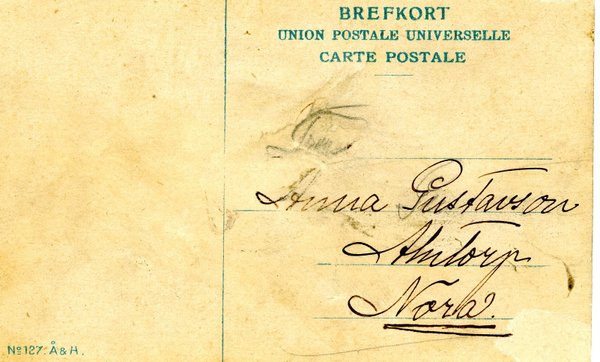 BREFKORT
UNION POSTALE UNIVERSELLE
CARTE POSTALE
Anna Gustavson
Nora.
No 127. Å & H.